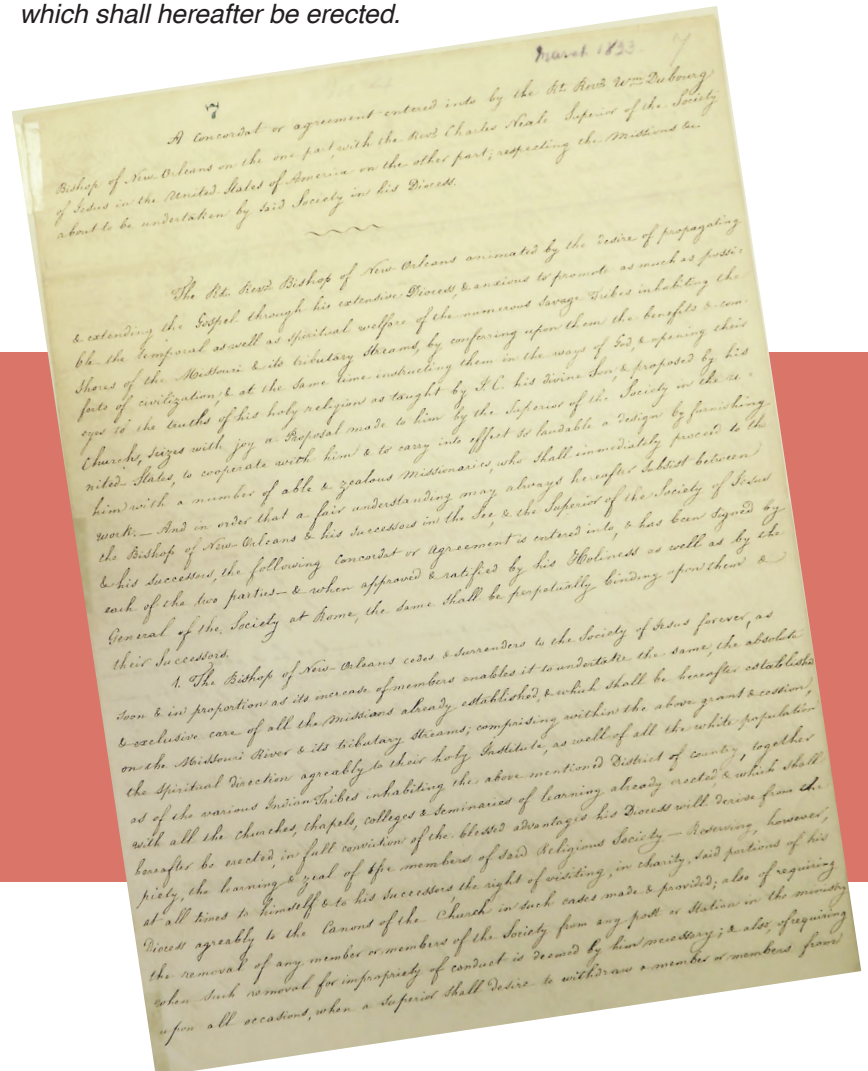 which shall hereafter be erected.
March 1823. 7
7
A Concordat or agreement entered into by the Rt. Revd. Wm Dubourg
Bishop of New-Orleans on the one part, with the Revd. Charles Neale Superior of the Society
of Jesus in the United States of America on the other part; respecting the Missions
about to be undertaken by said Society in his Diocess.
The Rt. Revd. Bishop of New-Orleans animated by the desire of propagating
& extending the Gospel through his extensive Diocess, & anxious to promote as much as possi-
ble the temporal as well as spiritual welfare of the numerous Savage Tribes inhabiting the
Shores of the Missouri & its tributary Streams, by conferring upon them the benefits & com-
forts of civilization, & at the same time instructing them in the ways of God, & opening their
eyes to the truths of his holy religion as taught by J.C. his divine Son, & proposed by his
Church, seizes with joy a Proposal made to him by the Superior of the Society in the U-
nited-States, to cooperate with him & to carry into effect so laudable a design by furnishing
him with a number of able & zealous Missionaries, who shall immediately proceed to the
work. — And in order that a fair understanding may always hereafter subsist between
the Bishop of New-Orleans & his successors in the See, & the Superior of the Society of Jesus
& his Successors, the following Concordat or Agreement is entered into, & has been signed by
each of the two parties — & when approved & ratified by his Holiness as well as by the
General of the Society at Rome, the same shall be perpetually binding upon them &
their Successors.
1. The Bishop of New-Orleans cedes & surrenders to the Society of Jesus forever, as
soon & in proportion as its increase of members enables it to undertake the same, the absolute
& exclusive care of all the Missions already established, & which shall be hereafter established
on the Missouri River & its tributary Streams; comprising within the above grant & cession,
the spiritual direction agreably to their holy Institute, as well of all the white population
as of the various Indian Tribes inhabiting the above mentioned District of country, together
with all the Churches, Chapels, Colleges & Seminaries of learning already erected, & which shall
hereafter be erected, in full conviction of the blessed advantages his Diocess will derive from the
piety, the learning & zeal of the members of said Religious Society — Reserving, however,
at all times to himself & to his successors the right of visiting, in charity, said portions of his
Diocess agreably to the Canons of the Church in such cases made & provided; also of requiring
the removal of any member or members of the Society from any post or Station in the ministry
when such removal for impropriety of conduct is deemed by him necessary; & also, of requiring
upon all occasions, when a Superior shall desire to withdraw a member or members from